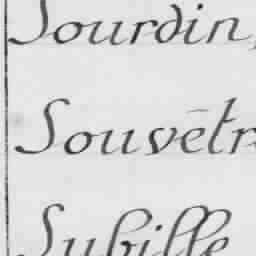 Sourdin,
Souvētr
Subille